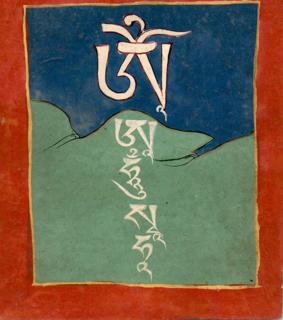 ཨོཾ
ཨཱ
ཧཱུ
སྭཱ
ཧཱ